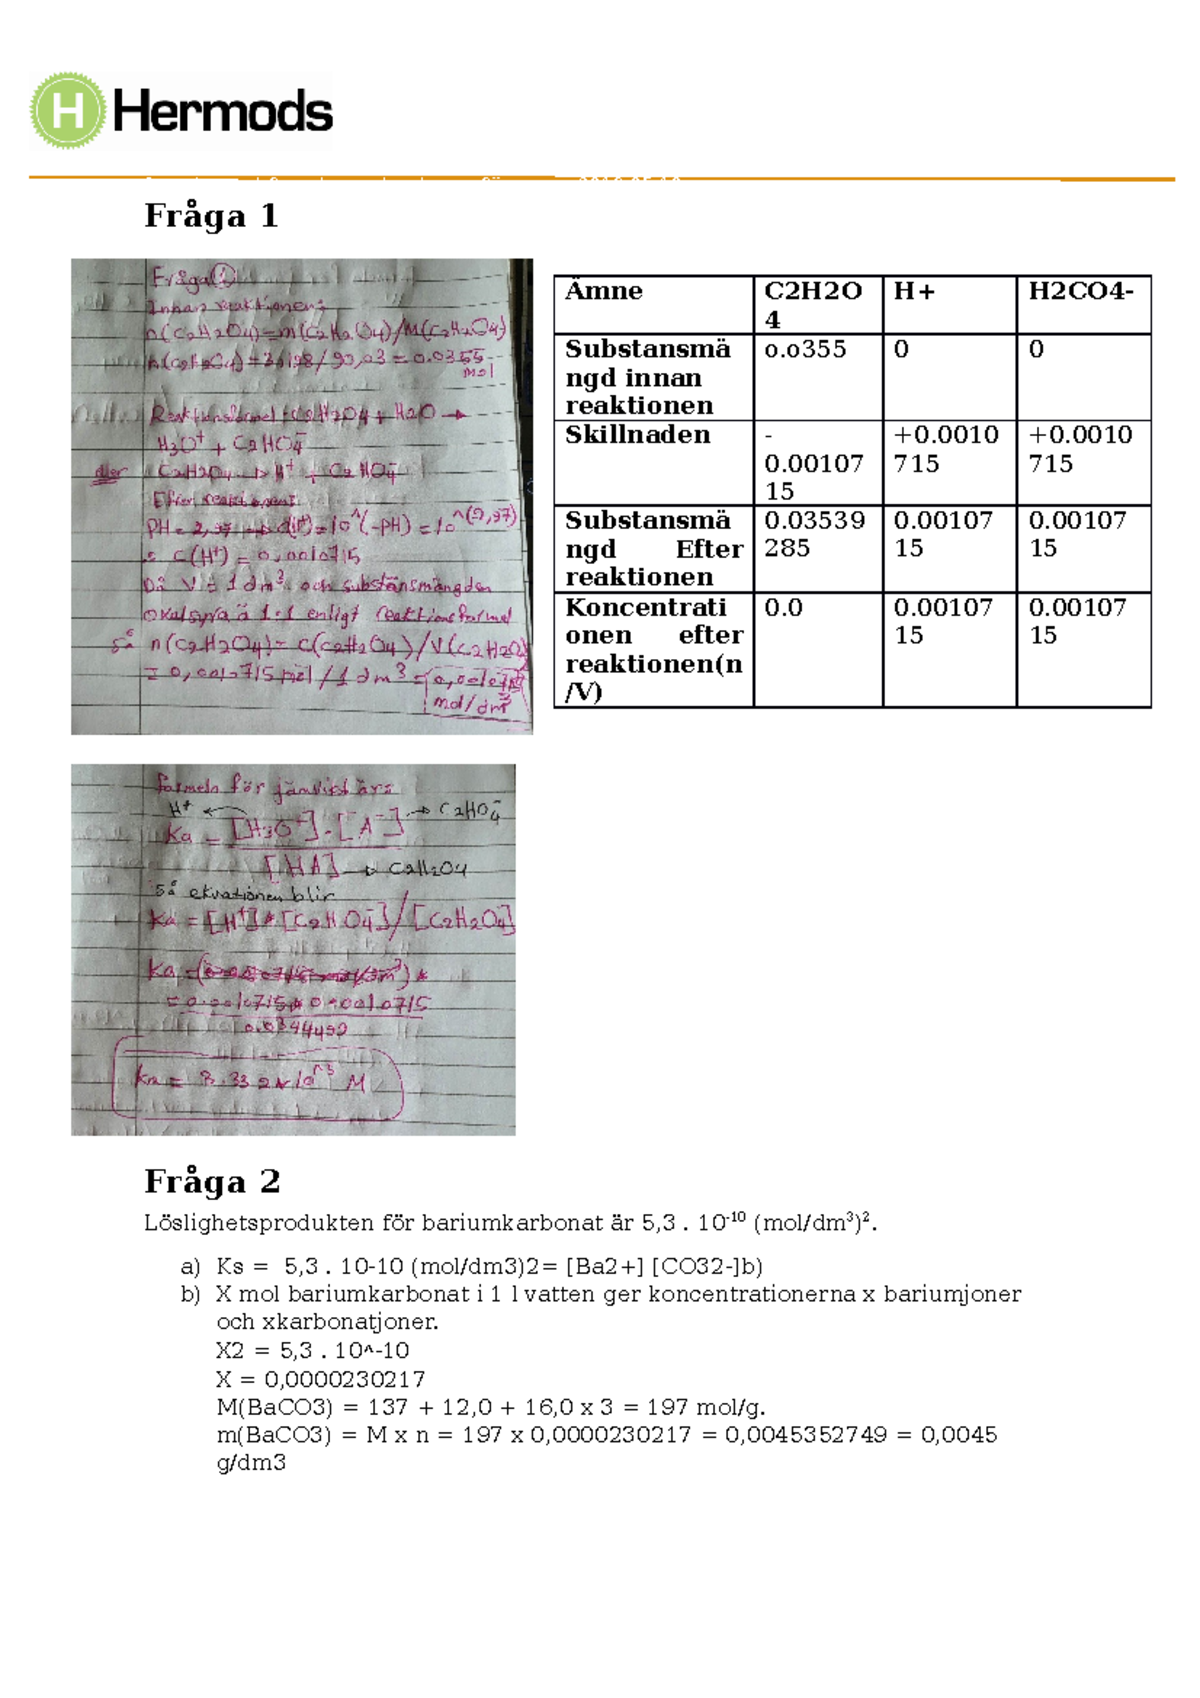 Hermods
Fråga 1
Fråga 1
Innan reaktionen:
n(C2H2O4)=m(C2H2O4)/M(C2H2O4)
n(C2H2O4)=3,198/90,03=0.0355
mol
Reaktionsformel: C2H2O4+H2O →
H3O+ + C2HO4-
eller C2H2O4 → H+ + C2HO4-
Efter reaktionen
PH=2,97 → (H+)=10^(-PH)=10^(2,97)
C(H+)=0,0010715
Då V=1dm3 och substansmängden
oxalsyra ä 1:1 enligt reaktionsformel
så n(C2H2O4)=C(C2H2O4)/V(C2H2O4)
=0,0010715mol/1dm3=0,0010715
mol/dm3
Ämne C2H2O H+ H2CO4-
4
Substansmä o.o355 0 0
ngd innan
reaktionen
Skillnaden - +0.0010 +0.0010
0.00107 715 715
15
Substansmä 0.03539 0.00107 0.00107
ngd Efter 285 15 15
reaktionen
Koncentrati 0.0 0.00107 0.00107
onen efter 15 15
reaktionen(n
/V)
formeln för jämvikt är:
H+ ← → C2HO4-
Ka = [H3O+].[A-]
[HA] → C2H2O4
så ekvationen blir
Ka=[H+]*[C2HO4-]/[C2H2O4]
Ka
=0.0010715*0.0010715
0.0344499
Ka = 3.332*10^-5 M
Fråga 2
Löslighetsprodukten för bariumkarbonat är 5,3 . 10-10 (mol/dm3)2.
a) Ks = 5,3 . 10-10 (mol/dm3)2= [Ba2+] [CO32-]b)
b) X mol bariumkarbonat i 1 l vatten ger koncentrationerna x bariumjoner
och xkarbonatjoner.
X2 = 5,3 . 10^-10
X = 0,0000230217
M(BaCO3) = 137 + 12,0 + 16,0 x 3 = 197 mol/g.
m(BaCO3) = M x n = 197 x 0,0000230217 = 0,0045352749 = 0,0045
g/dm3